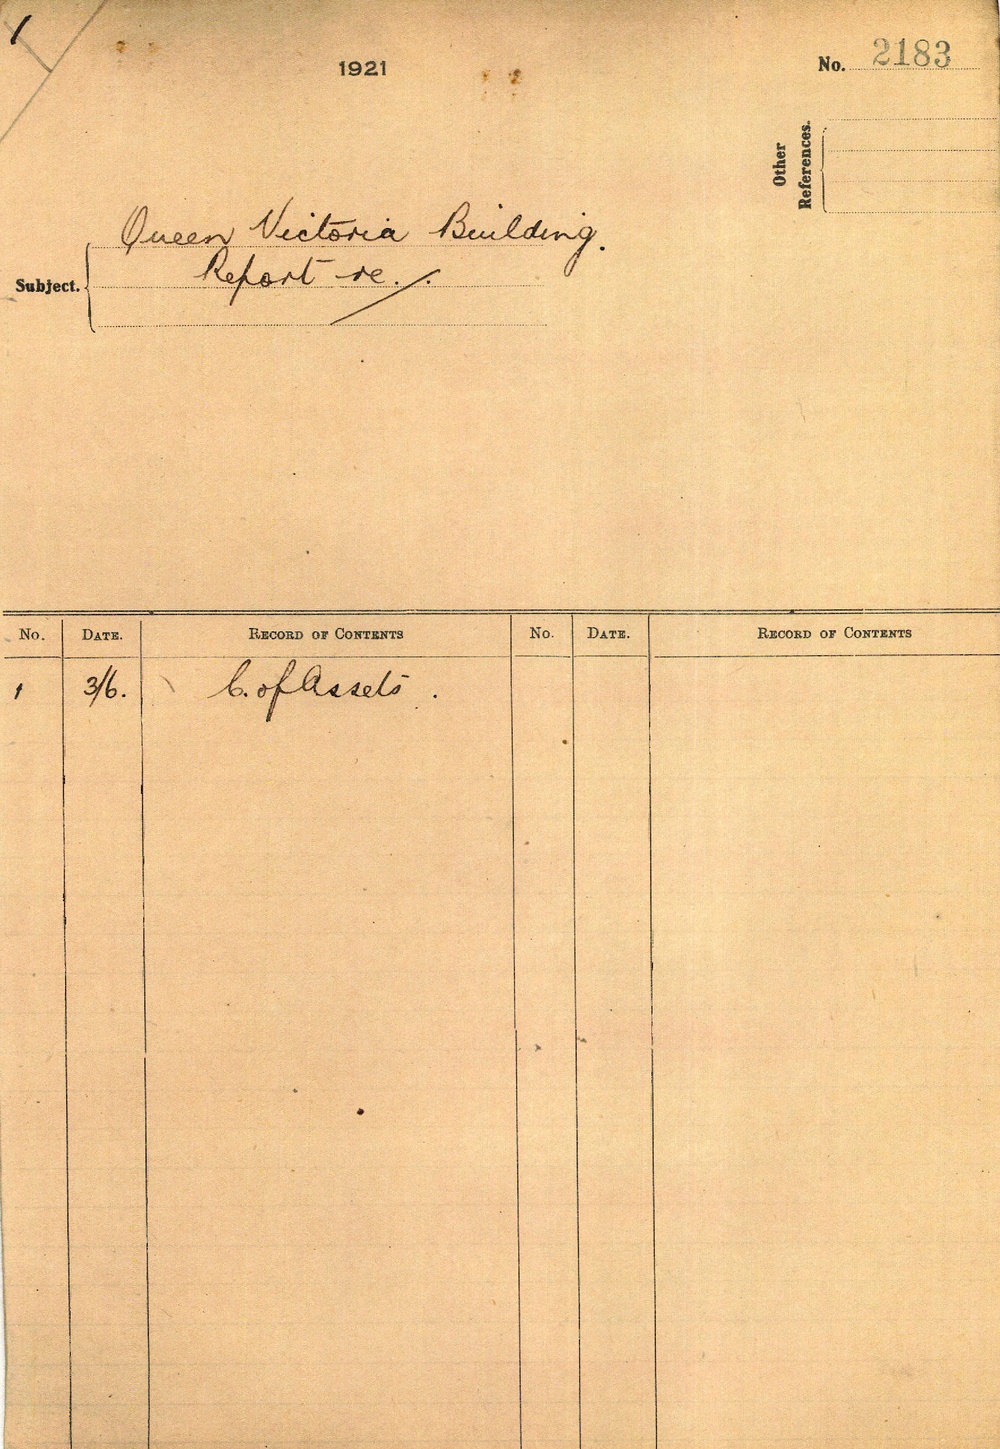 1
1921
No. 2183
Other
References.
Queen Victoria Building.
Report re.
Subject.
No. DATE. RECORD OF CONTENTS No. DATE. RECORD OF CONTENTS
1 3/6. C. of Assets.